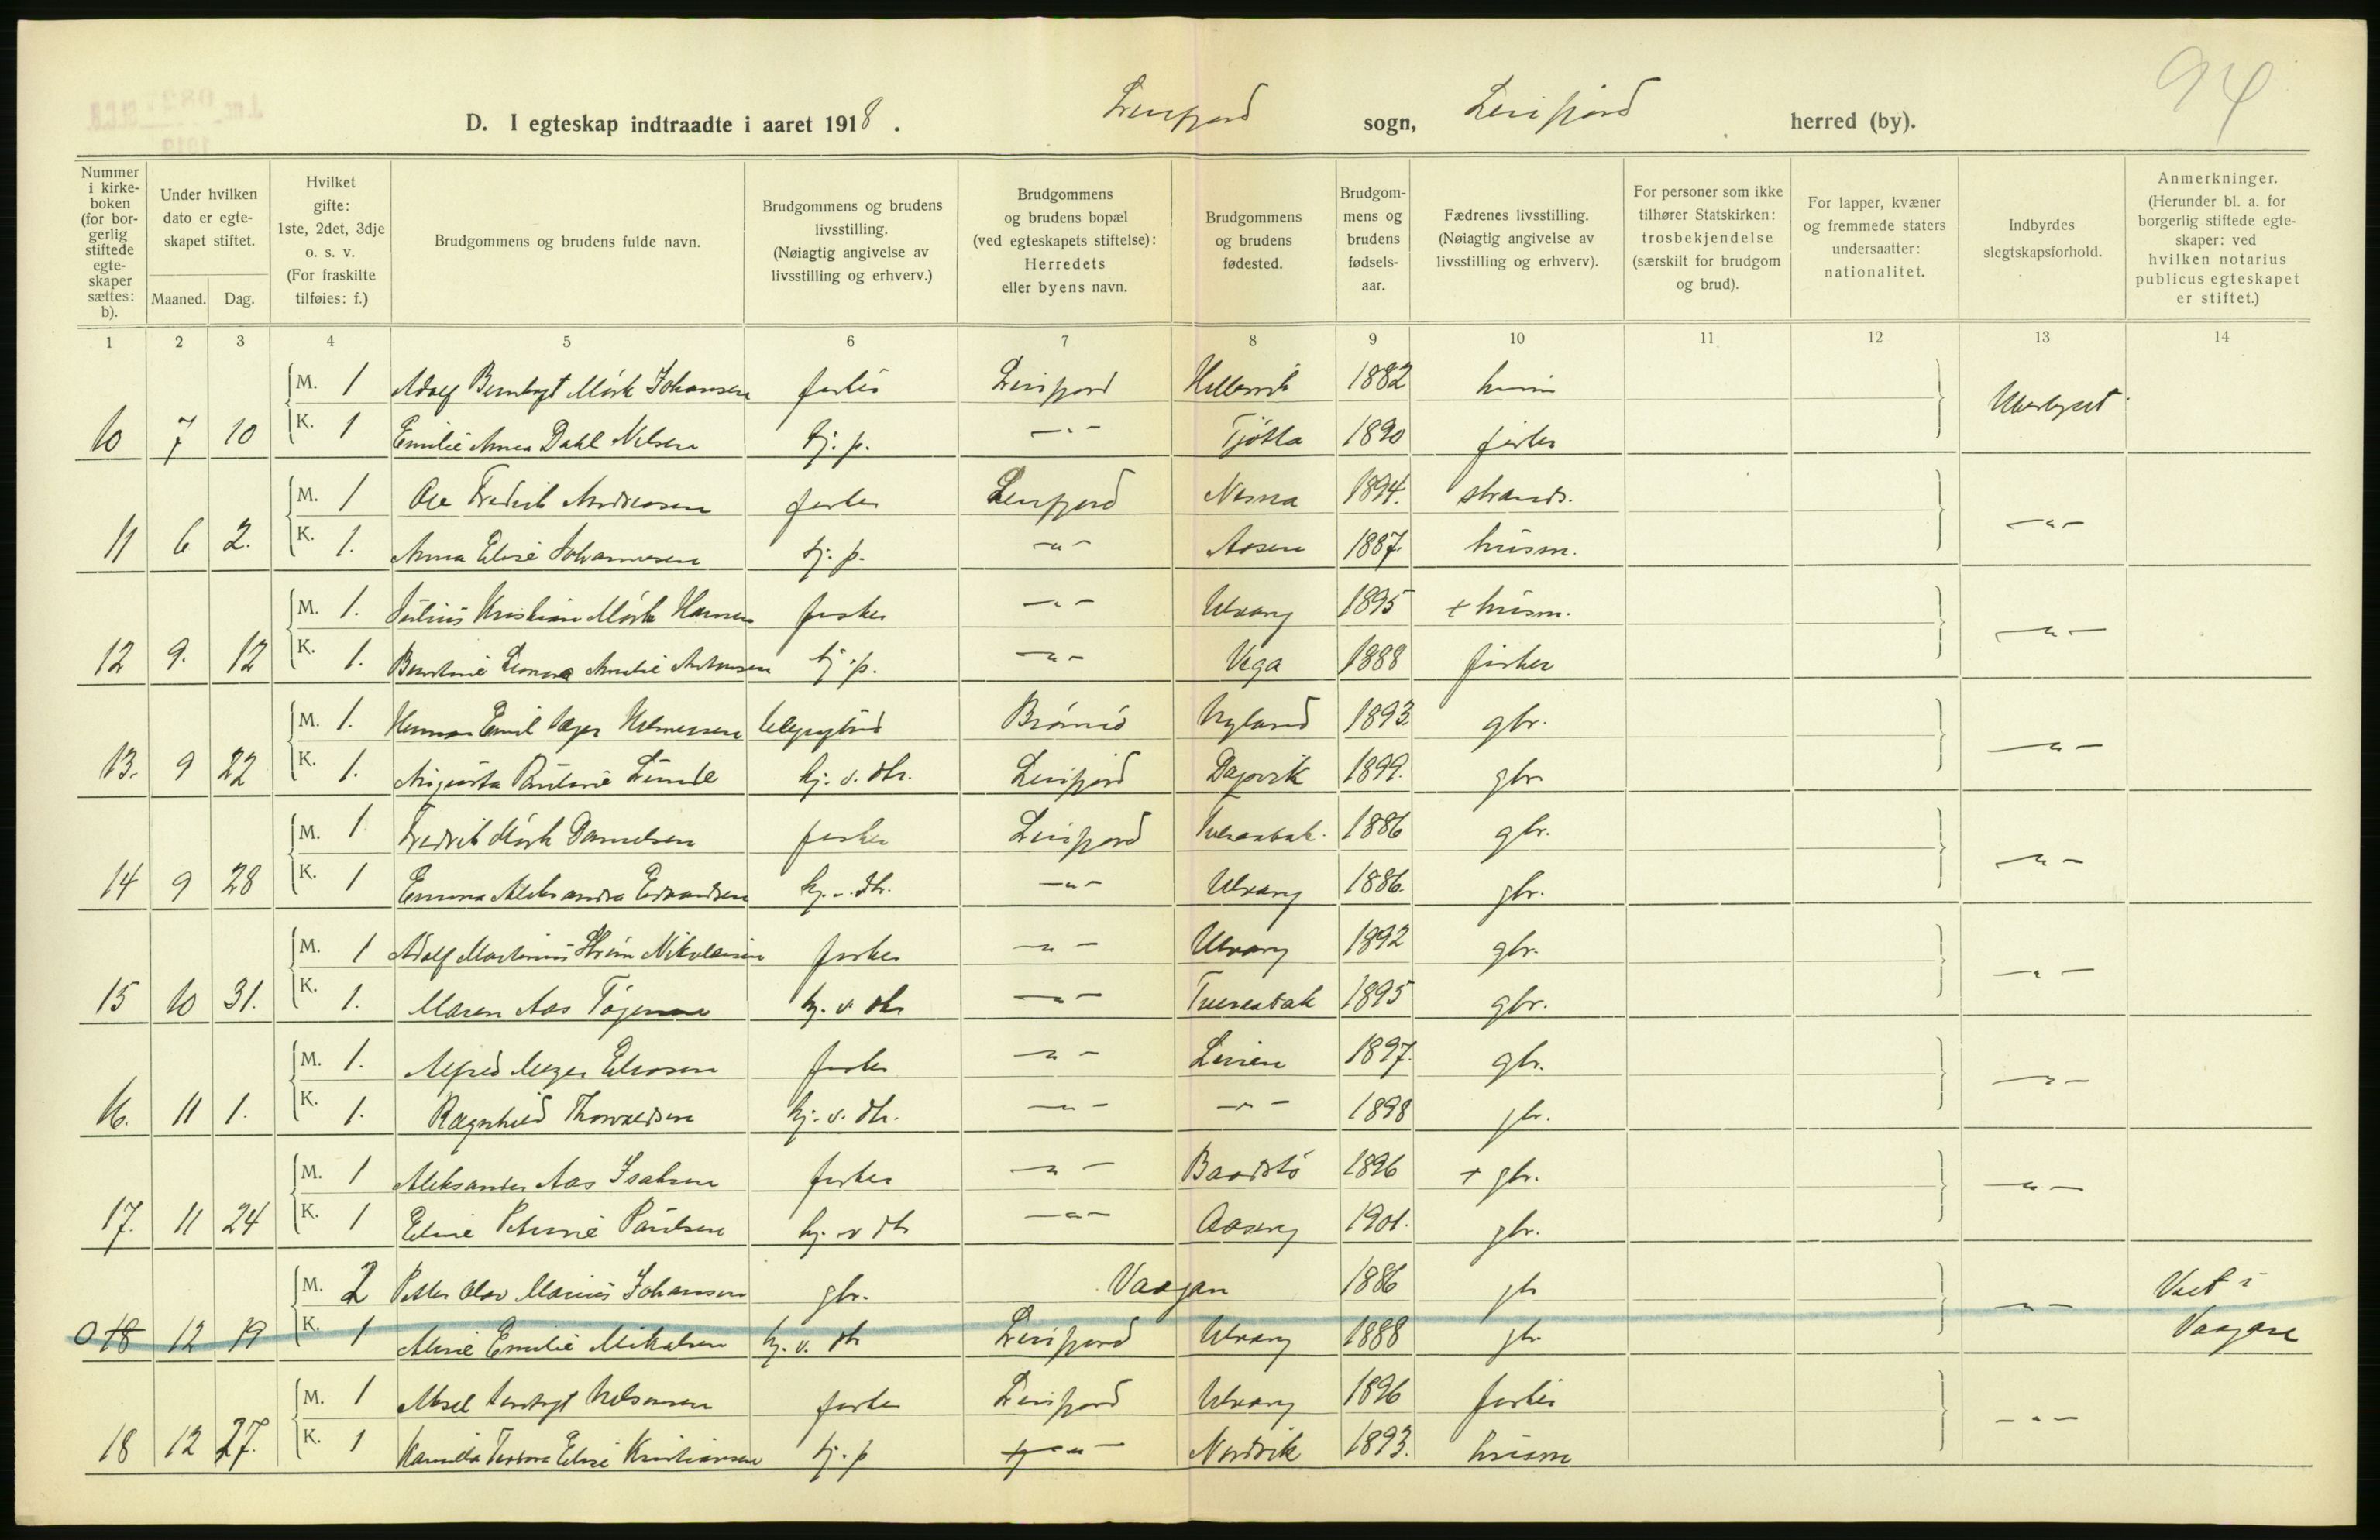 94
D. I egteskap indtraadte i aaret 1918. Leirfjord sogn, Leirfjord herred (by).
Nummer i kirkeboken (for borgerlig stiftede egteskaper sættes: b).
Under hvilken dato er egteskapet stiftet.
Maaned. Dag.
Hvilket gifte: 1ste, 2det, 3dje o. s. v. (For fraskilte tilføies: f.)
Brudgommens og brudens fulde navn.
Brudgommens og brudens livsstilling. (Nøiagtig angivelse av livsstilling og erhverv.)
Brudgommens og brudens bopæl (ved egteskapets stiftelse): Herredets eller byens navn.
Brudgommens og brudens fødested.
Brudgommens og brudens fødselsaar.
Fædrenes livsstilling. (Nøiagtig angivelse av livsstilling og erhverv).
For personer som ikke tilhører Statskirken: trosbekjendelse (særskilt for brudgom og brud).
For lapper, kvæner og fremmede staters undersaatter: nationalitet.
Indbyrdes slegtskapsforhold.
Anmerkninger. (Herunder bl. a. for borgerlig stiftede egteskaper: ved hvilken notarius publicus egteskapet er stiftet.)
1 2 3 4 5 6 7 8 9 10 11 12 13 14
M. 1 Adolf Mørk Johansen fisker Leirfjord 1882 husm Ubeslegtet
10 7 10 K. 1 Emilie Anna Dahl Nilsen tj. p. —"— Tjøtta 1890 fisker
M. 1 Ole Fredrik Andreasen fisker Leirfjord Nesna 1894. strands.
11 6 2. K. 1. Anna Elise Johannesen tj. p. —"— Aasen 1887. husm. —"—
M. 1. Julius Kristian Mørk Hansen fisker —"— Ulvang 1895 + husm.
12 9. 12 K. 1. Leonora Amalie Antonsen tj. p. —"— Vega 1888 fisker —"—
M. 1. Herman Emil Hilmersen Brønnø 1893. gbr.
13. 9 22 K. 1. Augusta Pauline Lunde hj. v. dtr. Leirfjord Dagsvik 1899. gbr. —"—
M. 1 Fredrik Mørk Danielsen fisker Leirfjord 1886 gbr.
14 9 28 K. 1 Emma Aleksandra Edvardsen hj. v. dtr. —"— Ulvang 1886. gbr. —"—
M. 1 Adolf Martinius Nikolaisen fisker —"— Ulvang 1892 gbr.
15 10 31. K. 1. Maren Aas hj. v dtr —"— 1895 gbr. —"—
M. 1. Alfred Meyer fisker —"— Leiren 1897. gbr.
16. 11 1. K. 1. Ragnhild Thorvaldsen hj. v. dtr. —"— —"— 1898 gbr. —"—
M. 1 Aleksander Aas Isaksen fisker —"— Baadstø 1896 + gbr.
17. 11 24 K. 1 Eline Petrine Paulsen hj. v dtr —"— 1901. gbr. —"—
M. 2 Petter Olav Marius Johansen gbr. Vaagan 1886 gbr Viet i
0 18 12 19 K. 1 Emilie Mikalsen hj. v. dtr Leirfjord Ulvang 1888 gbr —"— Vaagan
M. 1 Aksel fisker Leirfjord Ulvang 1896 fisker
18 12 27. K. 1 Elise Kristiansen tj. p —"— Nordvik 1893. husm —"—